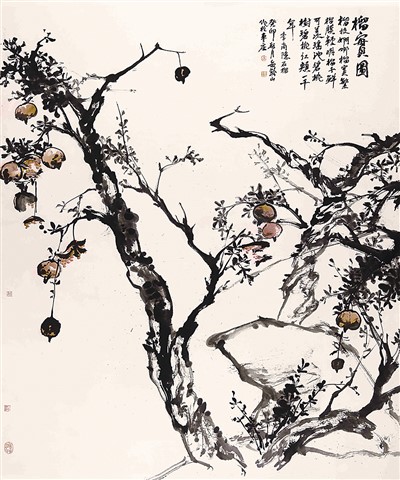 榴實圖
榴枝婀娜榴實繁
榴膜輕明榴子鮮
可羨瑤池碧桃
樹碧桃紅頰一千
年
李商隱石榴
癸卯 月 岳麓山